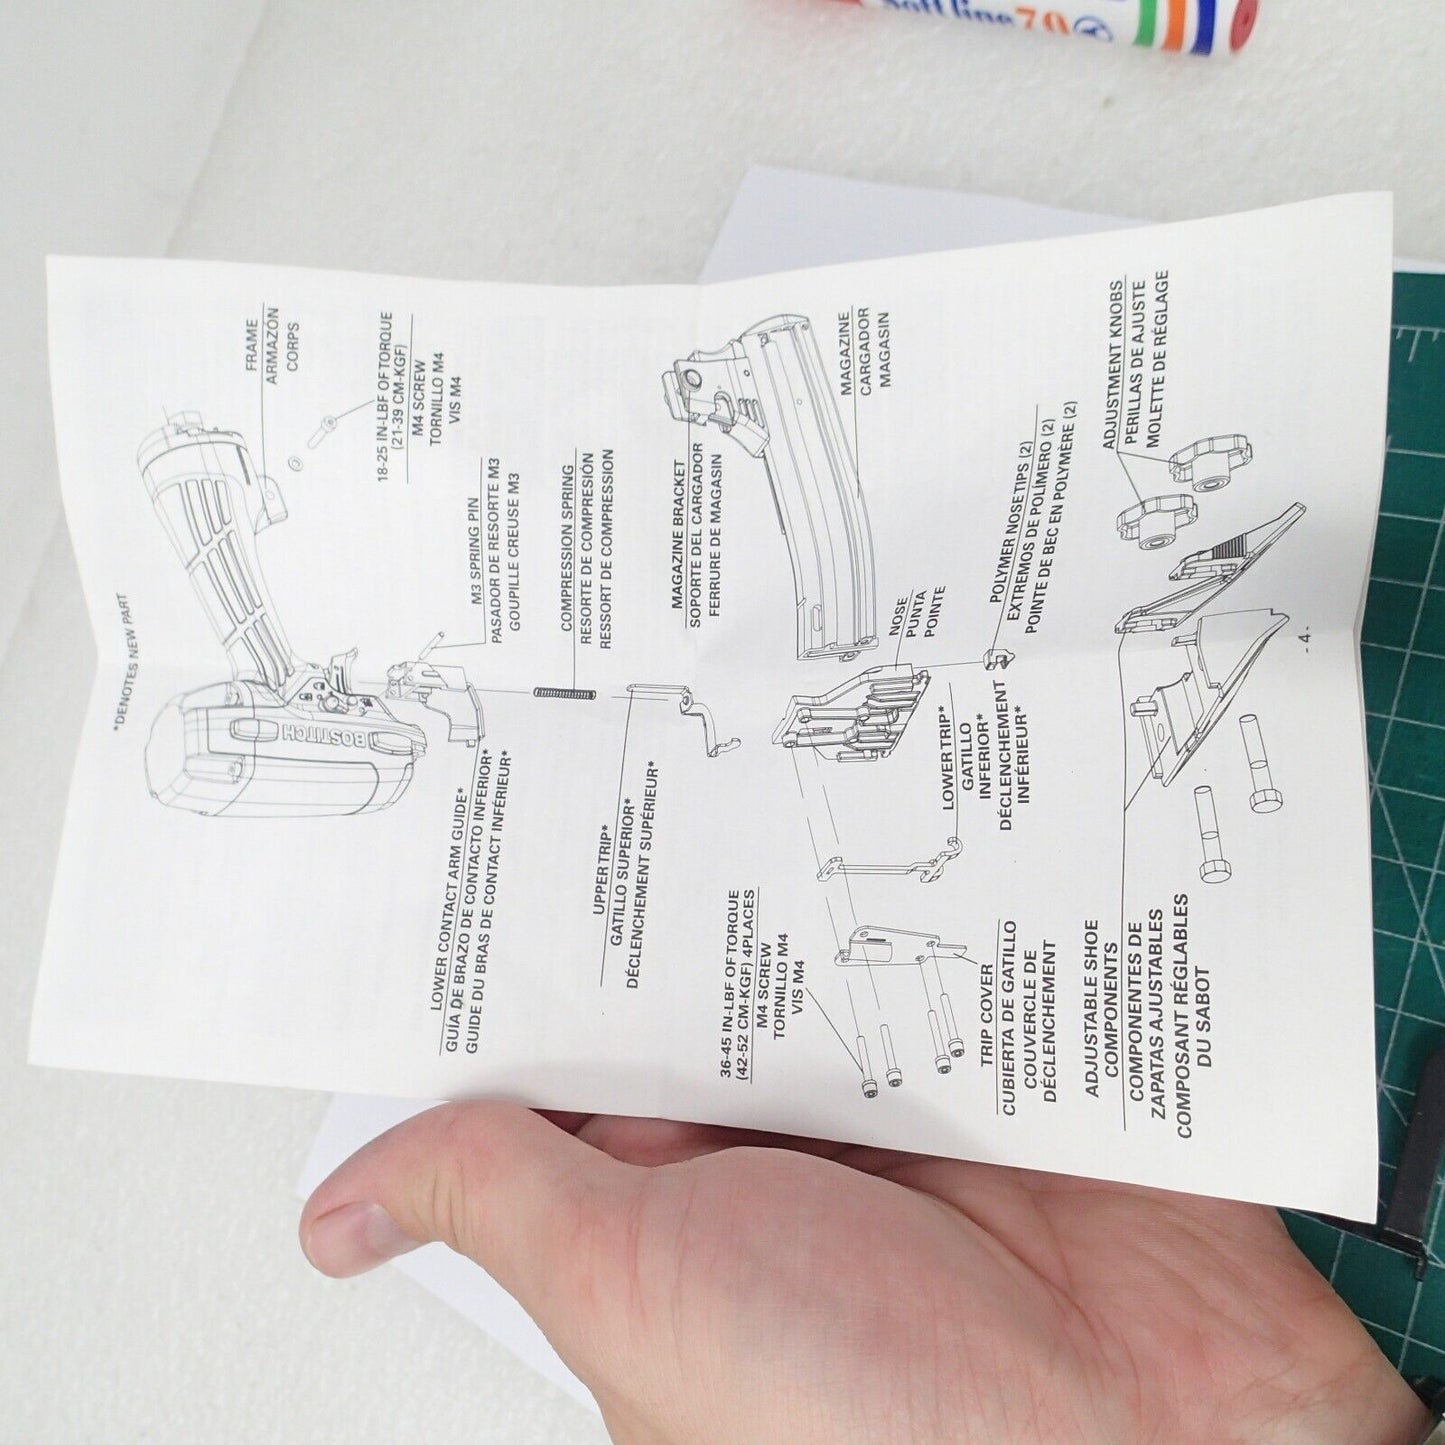 Soft line 70
*DENOTES NEW PART
FRAME
ARMAZÓN
CORPS
18-25 IN-LBF OF TORQUE
(21-39 CM-KGF)
M4 SCREW
TORNILLO M4
VIS M4
BOSTITCH
M3 SPRING PIN
PASADOR DE RESORTE M3
GOUPILLE CREUSE M3
COMPRESSION SPRING
RESORTE DE COMPRESIÓN
RESSORT DE COMPRESSION
LOWER CONTACT ARM GUIDE*
GUÍA DE BRAZO DE CONTACTO INFERIOR*
GUIDE DU BRAS DE CONTACT INFÉRIEUR*
UPPER TRIP*
GATILLO SUPERIOR*
DÉCLENCHEMENT SUPÉRIEUR*
MAGAZINE BRACKET
SOPORTE DEL CARGADOR
FERRURE DE MAGASIN
MAGAZINE
CARGADOR
MAGASIN
NOSE
PUNTA
POINTE
POLYMER NOSE TIPS (2)
EXTREMOS DE POLÍMERO (2)
POINTE DE BEC EN POLYMÈRE (2)
36-45 IN-LBF OF TORQUE
(42-52 CM-KGF) 4PLACES
M4 SCREW
TORNILLO M4
VIS M4
LOWER TRIP*
GATILLO
INFERIOR*
DÉCLENCHEMENT
INFÉRIEUR*
TRIP COVER
CUBIERTA DE GATILLO
COUVERCLE DE
DÉCLENCHEMENT
ADJUSTMENT KNOBS
PERILLAS DE AJUSTE
MOLETTE DE RÉGLAGE
ADJUSTABLE SHOE
COMPONENTS
COMPONENTES DE
ZAPATAS AJUSTABLES
COMPOSANT RÉGLABLES
DU SABOT
- 4 -